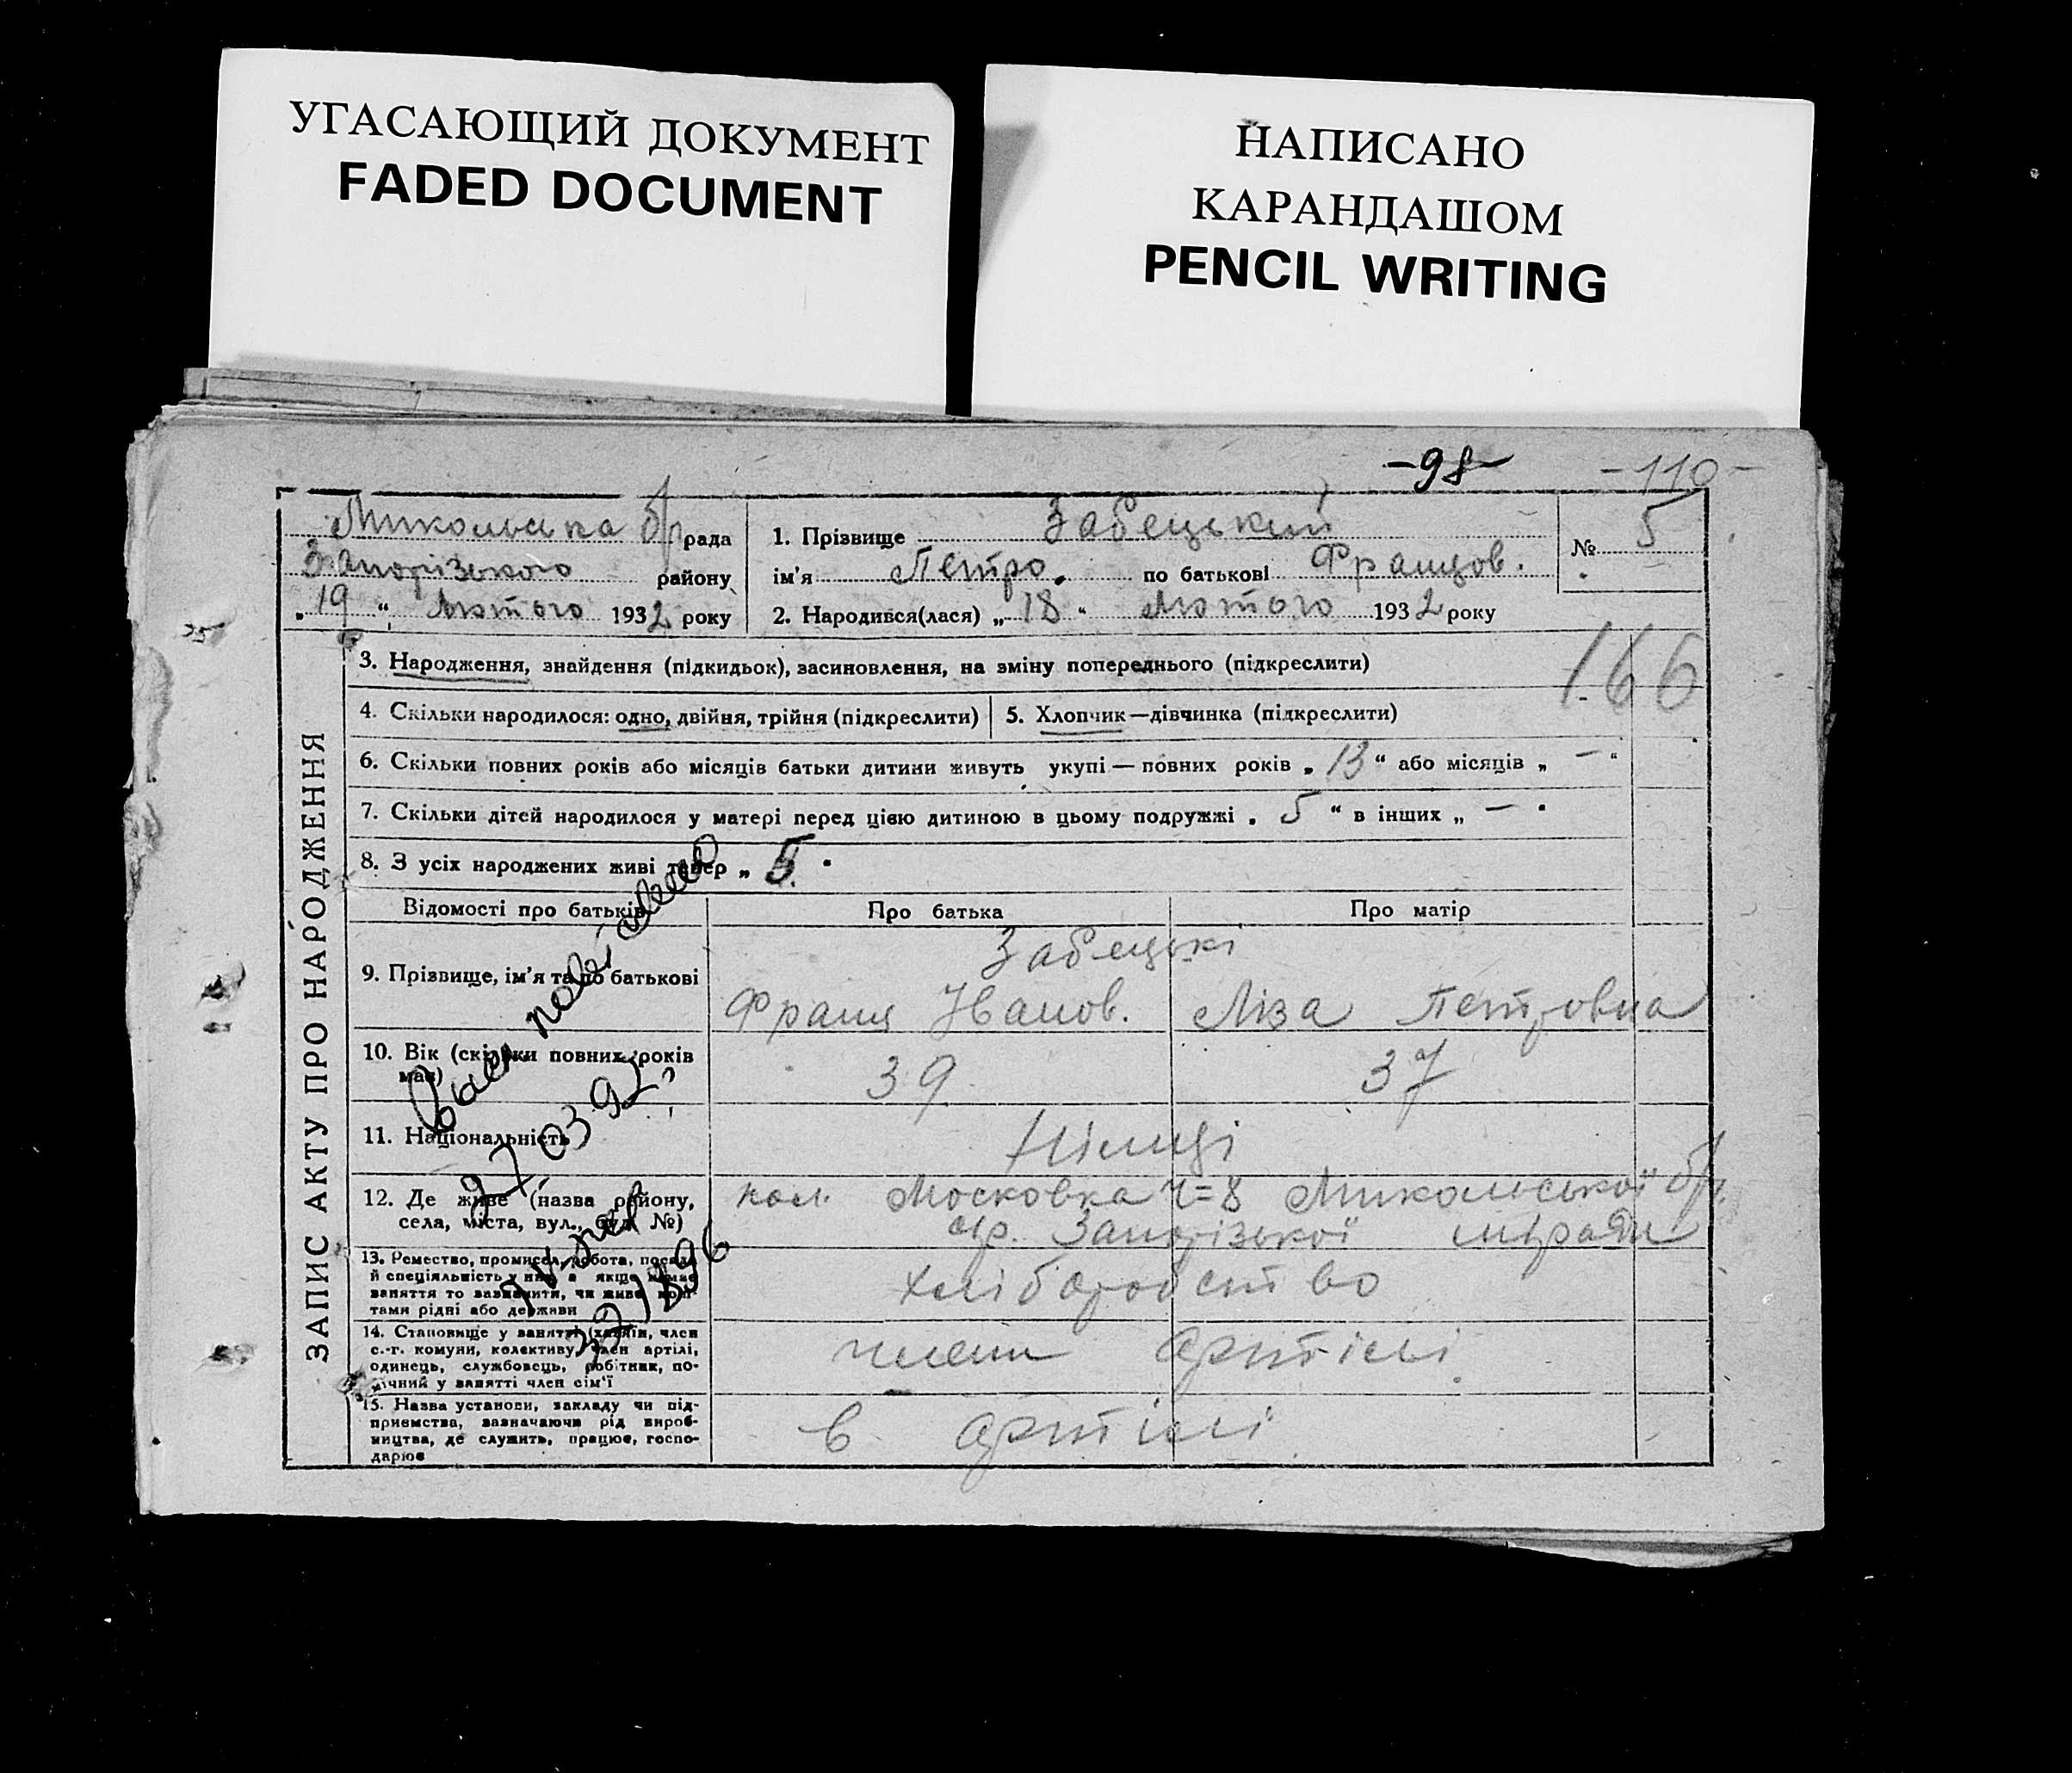 УГАСАЮЩИЙ ДОКУМЕНТ
FADED DOCUMENT
НАПИСАНО
КАРАНДАШОМ
PENCIL WRITING
-98-
-110-
Микольська б/р рада
Запорізького району
„19“ лютого 1932 року
1. Прізвище Забецький
ім'я Петро. по батькові Францов.
2. Народився(лася) „18“ лютого 1932 року
№ 5
166
ЗАПИС АКТУ ПРО НАРОДЖЕННЯ
3. Народження, знайдення (підкидьок), засиновлення, на зміну попереднього (підкреслити)
4. Скільки народилося: одно, двійня, трійня (підкреслити)
5. Хлопчик—дівчинка (підкреслити)
6. Скільки повних років або місяців батьки дитини живуть укупі — повних років „13“ або місяців „—“
7. Скільки дітей народилося у матері перед цією дитиною в цьому подружжі „5“ в інших „—“
8. З усіх народжених живі тепер „5“
Відомості про батьків
Про батька
Про матір
9. Прізвище, ім'я та по батькові
Забецькі
Франц Іванов.
Ліза Петровна
10. Вік (скільки повних років має)
39
37
11. Національність
Німці
12. Де живе (назва району,
села, міста, вул., буд. №)
кол. Московка ч=8 Микольської б/р.
Запорізької м/ради
13. Ремество, промисел, робота, посада
й спеціяльність у них, а якщо немає
заняття то зазначити, чи живе кош-
тами рідні або держави
хліборобство
14. Становище у занятті (хазяїн, член
с.-г. комуни, колективу, член артілі,
одинець, службовець, робітник, по-
мічний у занятті член сім'ї
член артілі
15. Назва установи, закладу чи під-
приємства, зазначаючи рід вироб-
ництва, де служить, працює, госпо-
дарює
в артілі
27 03 92